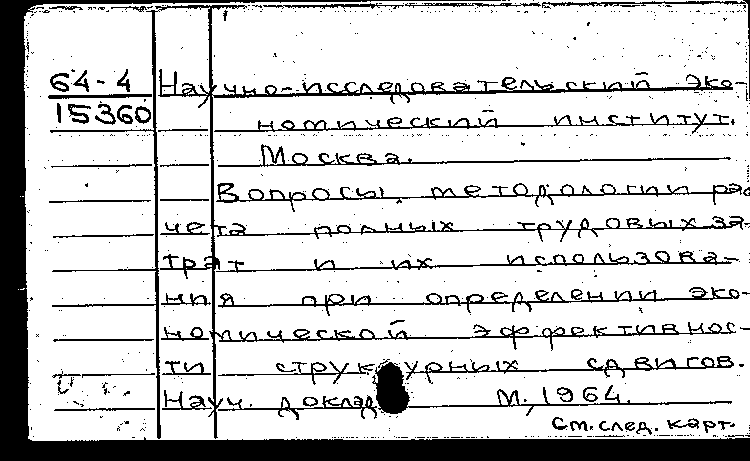 64-4 Научно-исследовательский эко-
15360 номический институт.
Москва.
Вопросы методологии рас
чета полных трудовых за-
трат и их использова-
ния при определении эко-
номической эффективнос-
ти структурных сдвигов.
Науч. доклад М., 1964.
См. след. карт.